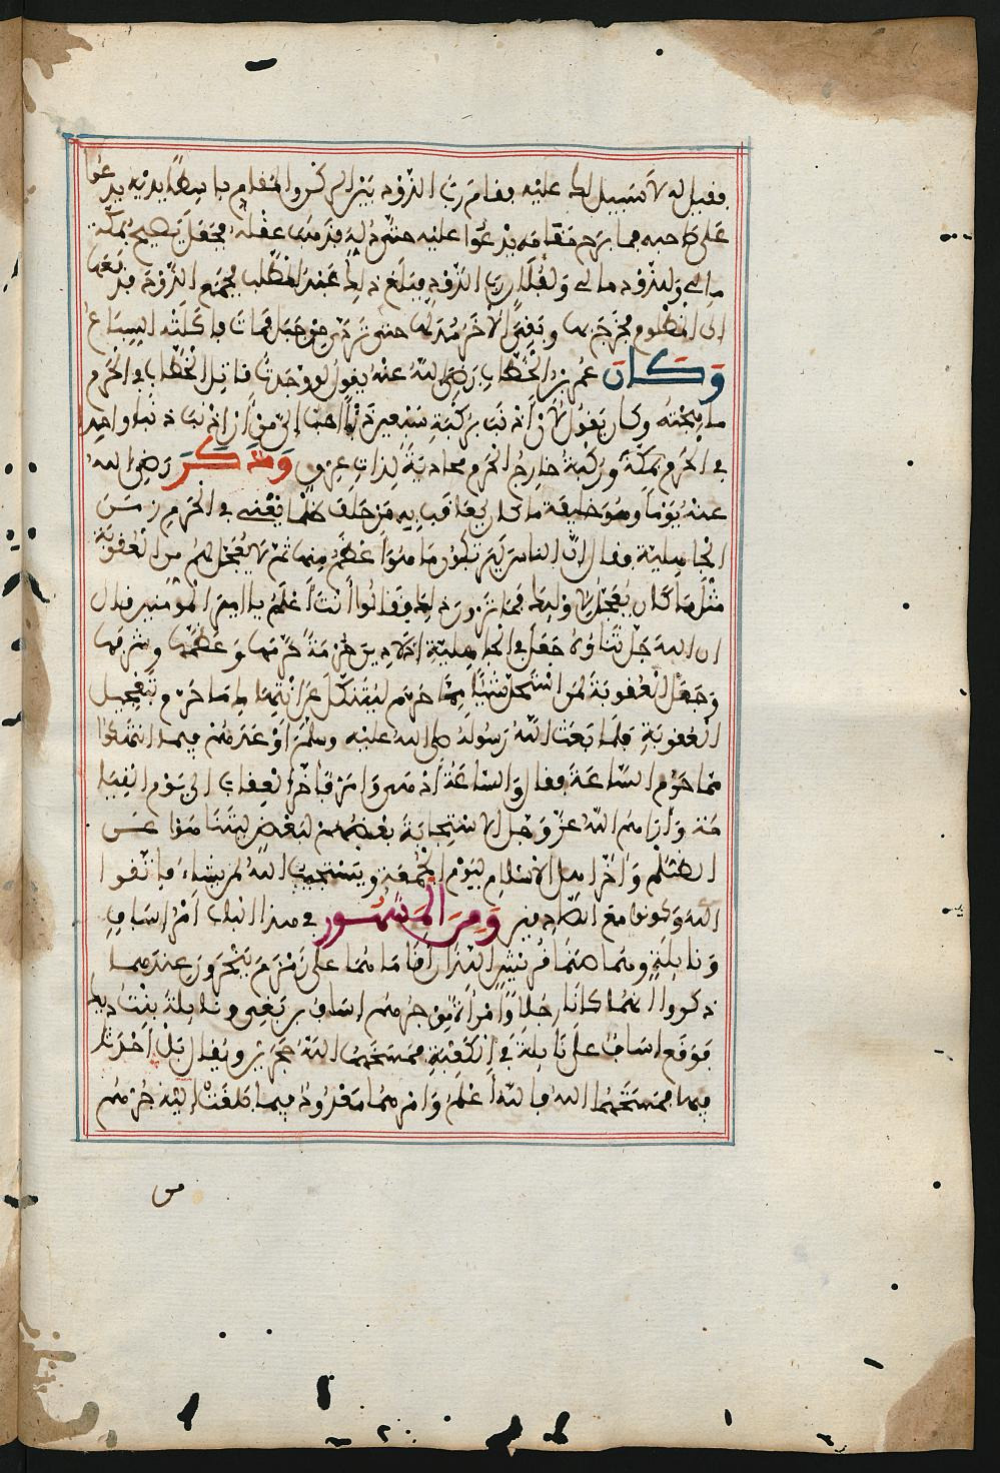 فقيل له لا سبيل لك عليه فقام رب الذود بين الركن والمقام باسطا يديه يدعوا
على صاحبه فما برح مقامه يدعوا عليه حتى وله فذهب عقله فجعل يصيح بمكة
مالي وللذود مالي ولفلان رب الذود فبلغ ذلك عبد المطلب فجمع الذود فدفعها
الى المظلوم فخرج بها وبقي الاخر مدلها حتى تردى من جبل فمات فاكلته السباع
وكان عمر بن الخطاب رضي الله عنه يقول لو وجدت قاتل الخطاب في الحرم
ما هجته وكان يقول لأن أذنب بركبة سبعين ذنبا احب الي من ان اذنب ذنبا واحدا
في الحرم بمكة وركبة خارج الحرم محاذية لذات عرق وذكر رضي الله
عنه يوما وهو خليفة ما كان يعاقب به من حلف ظلما يعني في الحرم زمن
الجاهلية وقال ان الناس ليرتكبون ما هو أعظم منها ثم لا يعجل لهم من العقوبة
مثل ما كان يعجل لاولئك فما ترون ذلك فقالوا أنت أعلم يا امير المومنين قال
ان الله جل ثناؤه جعل في الجاهلية اذ لا دين حرمة حرمها وعظمها وشرفها
وجعل العقوبة لمن استحل شيئا مما حرم ليتنكل عن انتهاك ما حرم بتعجيل
العقوبة فلما بعث الله رسوله صلى الله عليه وسلم أوعدهم فيما انتهكوا
مما حرم الساعة فقال والساعة ادهى وامر فأخر العقاب الى يوم القيا
مة وأراهم الله عز وجل الاستجابة بعضهم لبعض ليتناهوا عن
الظلم وأخر اهل الاسلام ليوم الجمعة ويستجيب الله لمن يشاء فاتقوا
الله وكونوا مع الصادقين ومن المشهور في هذا الباب أمر إساف
ونائلة وهما صنما قريش اللذان أقاماهما على زمزم ينحرون عندهما
ذكروا انهما كانا رجلا وامرأة من جرهم اساف بن بغي ونائلة بنت ديك
فوقع اساف على نائلة في الكعبة فمسخهما الله حجرين ويقال بل أحدثا
فيها فمسخهما الله فالله أعلم وامرهما معدود فيما بلغت اليه جرهم
من